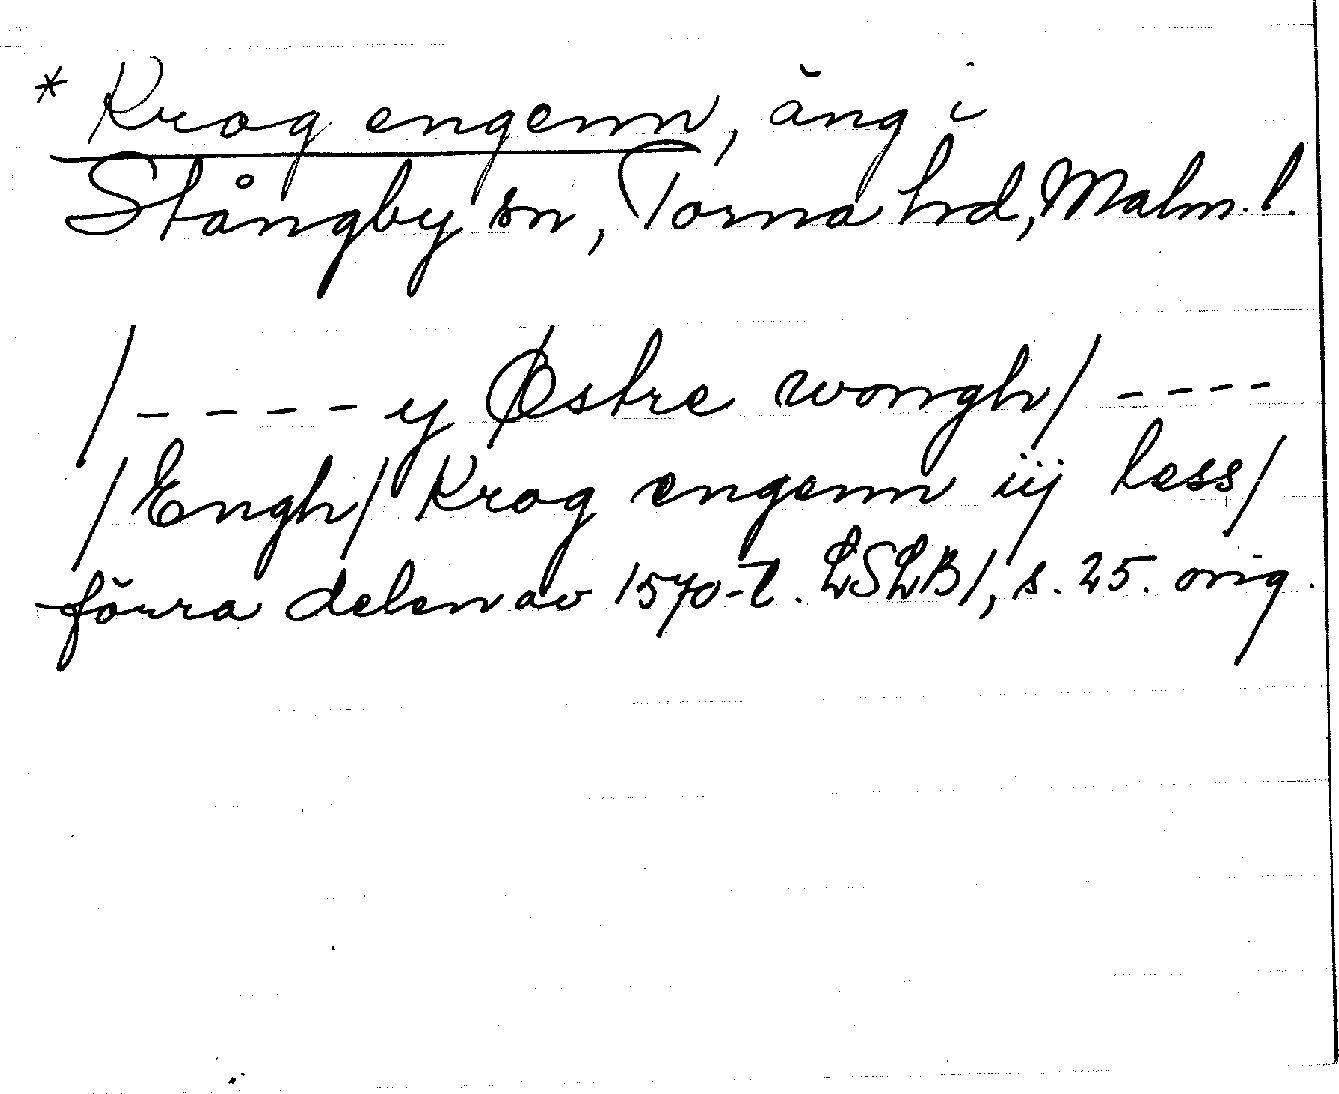 * Krog engenn, äng i
Stångby sn, Torna hrd, Malm. l.
/ - - - - y Østre wongh / - - - -
/ Engh / Krog engenn iij less /
förra delen av 1570-t. LSLB1, s. 25. orig.